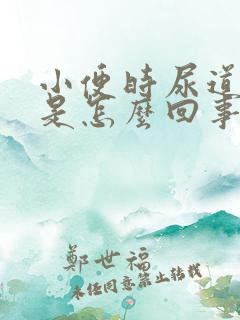 小便時尿道
是怎麼回事
鄭世福
未任同意禁止转载